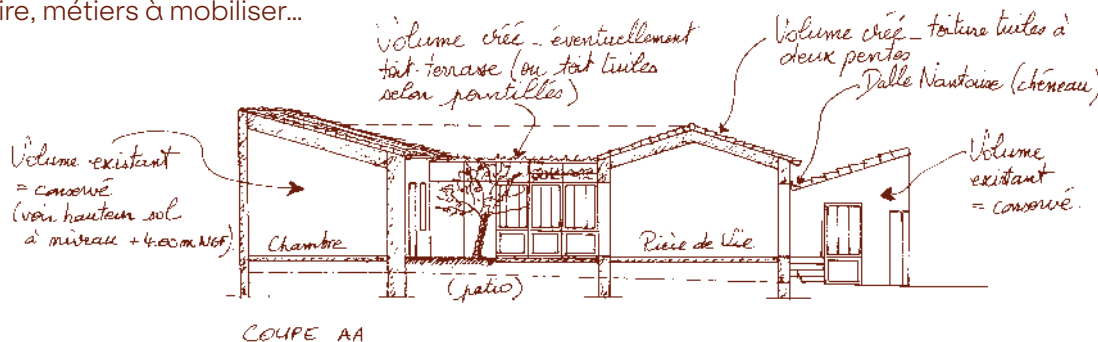 ire, métiers à mobiliser...
Volume créé _ éventuellement
toit-terrasse (ou toit tuiles
selon pointillés)
Volume créé _ toiture tuiles à
deux pentes
Dalle Nantaise (chéneau)
Volume existant
= conservé
(voir hauteur sol
à niveau + 4.00m NGF)
Volume
existant
= conservé.
Chambre
Pièce de Vie
(patio)
COUPE AA